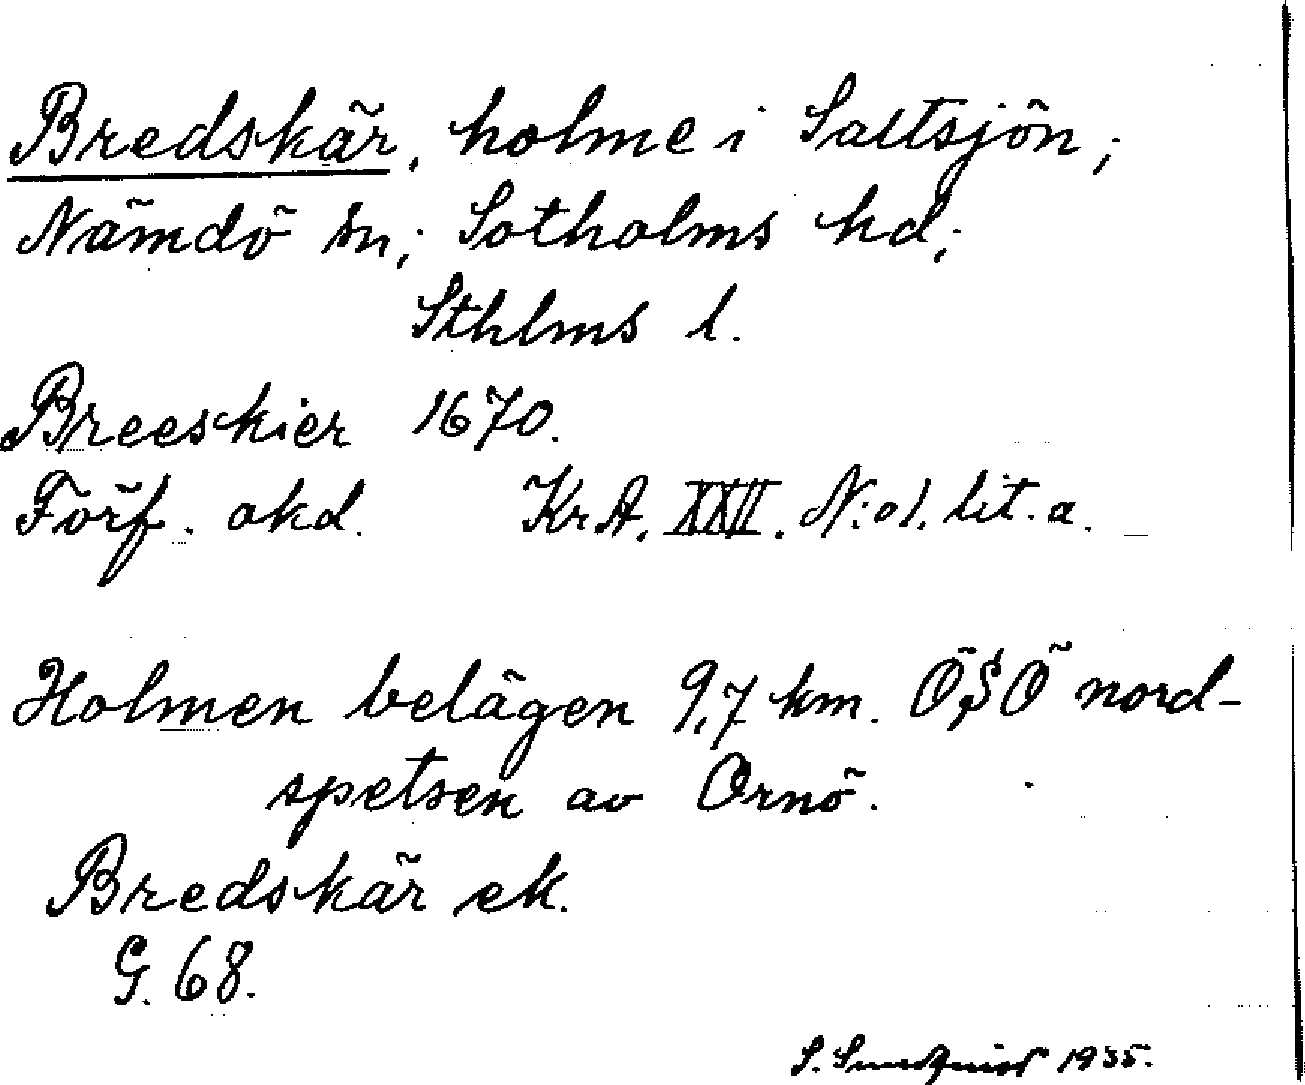 Bredskär, holme i Saltsjön;
Nämdö sn; Sotholms hd;
Sthlms l.
Breeskier 1670.
Förf. okd. KrA. XXII. N:o 1. lit. a.
Holmen belägen 9,7 km. ÖSÖ nord-
spetsen av Ornö.
Bredskär ek.
G. 68.
S. Sundquist 1935.